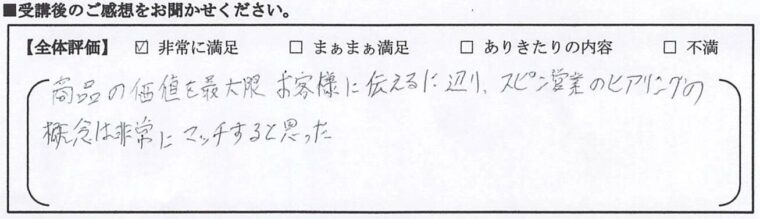 ■受講後のご感想をお聞かせください。
【全体評価】 ☑ 非常に満足 □ まぁまぁ満足 □ ありきたりの内容 □ 不満
商品の価値を最大限 お客様に伝えるに辺り、スピン営業のヒアリングの
概念は非常にマッチすると思った